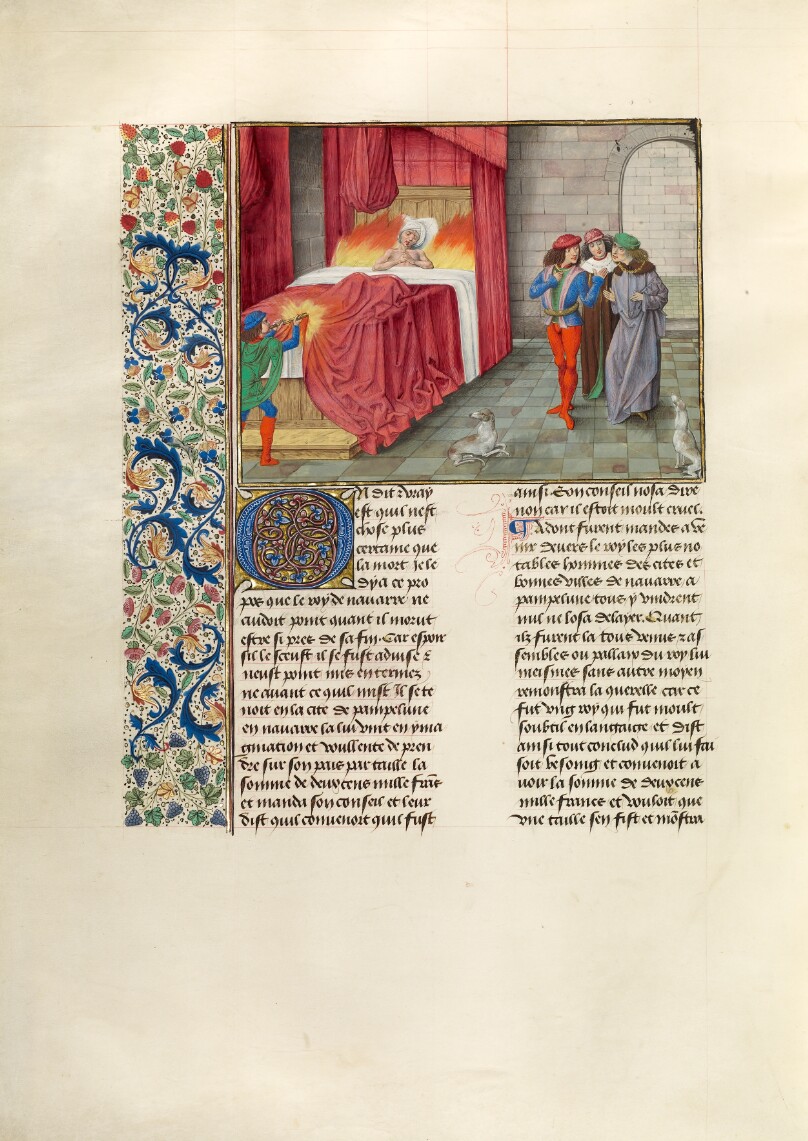 On dit et vray
est quil nest
chose plus
certaine que
la mort Je le
dy a ce pro
pos que le roy de nauarre ne
cuidoit point quant il morut
estre si pres de sa fin. Car espoir
sil le sceust il se fust aduise &
neust point mis en termez
ne auant ce quil mist Il se te
noit en la cite de pampelune
en nauarre la lui vint en yma
gination et voullente de pren
dre sur son pais par taille la
somme de deux cens mille frans
et manda son conseil et leur
dist quil conuenoit quil fust
ainsi. Son conseil nosa dire
non car il estoit moult cruel.
Adont furent mandes a ve
nir deuers le roy les plus no
tables hommes des cites et
bonnes villes de nauarre a
pampelune tous y vindrent
nul ne losa delayer. Quant
ilz furent la tous venus et as
sembles ou pallais du roy lui
meismes sans autre moyen
remonstra la querelle car ce
fut vng roy qui fut moult
soubtil en langaige et dist
ainsi tout conclud quil lui fai
soit besoing et conuenoit a
uoir la somme de deux cens
mille francs et vouloit que
vne taille sen fist et monstra